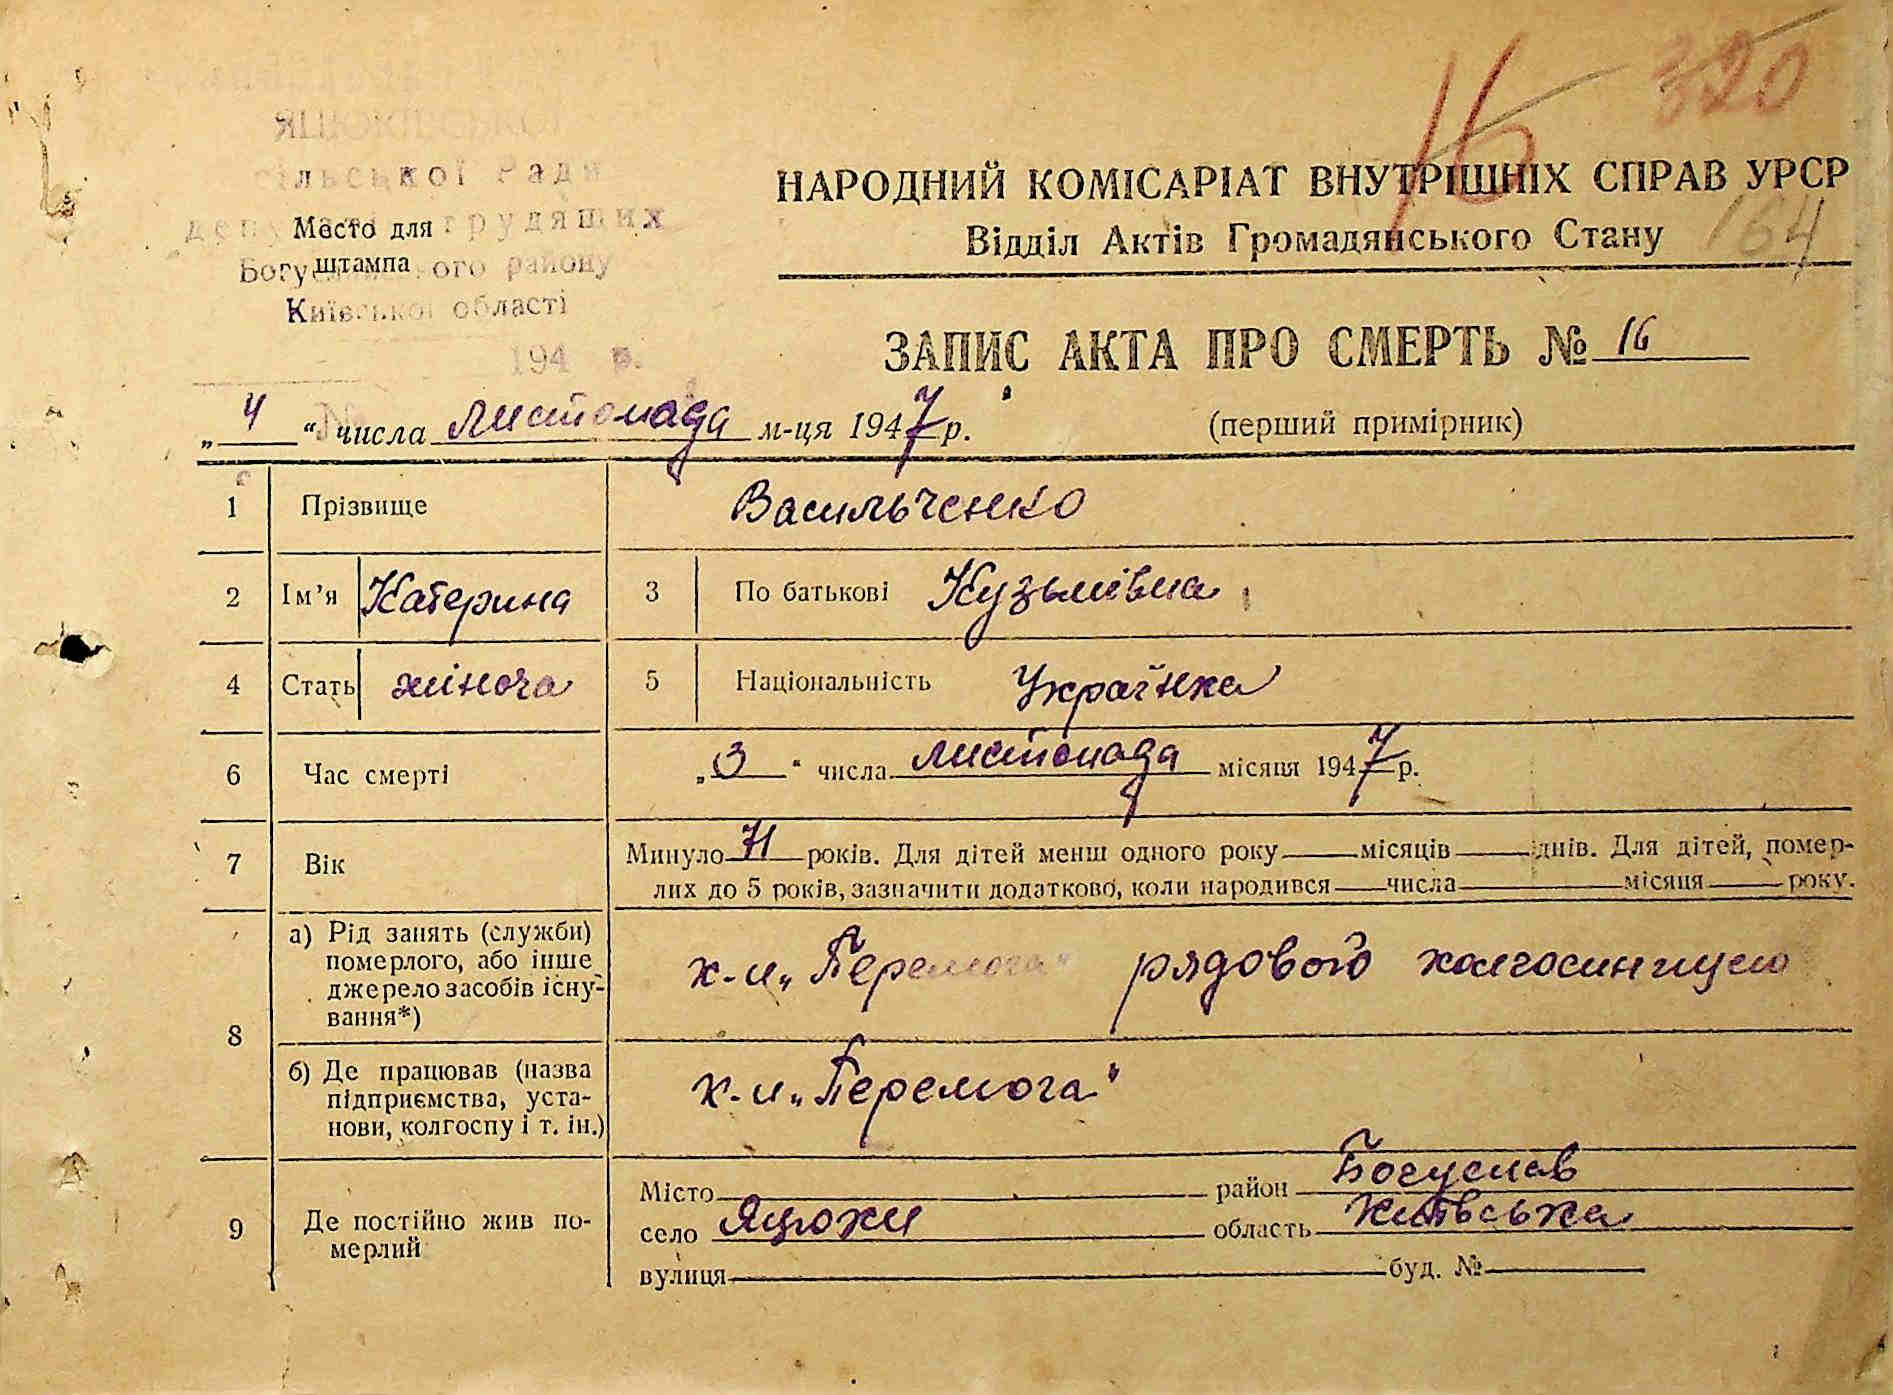 320
16
164
сільської Ради
депутатів трудящих
Богуславського району
Київської області
194 р.
№
Место для
штампа
НАРОДНИЙ КОМІСАРІАТ ВНУТРІШНІХ СПРАВ УРСР
Відділ Актів Громадянського Стану
ЗАПИС АКТА ПРО СМЕРТЬ № 16
„4“ числа листопада м-ця 1947 р. (перший примірник)
1 Прізвище Васильченко
2 Ім'я Катерина 3 По батькові Кузьмівна
4 Стать жіноча 5 Національність Українка
6 Час смерті „3“ числа листопада місяця 1947 р.
7 Вік Минуло 71 років. Для дітей менш одного року місяців днів. Для дітей, помер-
лих до 5 років, зазначити додатково, коли народився числа місяця року.
8 а) Рід занять (служби)
померлого, або інше
джерело засобів існу-
вання*)
к-и „Перемога“ рядового
б) Де працював (назва
підприємства, уста-
нови, колгоспу і т. ін.)
к-и „Перемога“
9 Де постійно жив по-
мерлий
Місто район Богуслав
село Яцюки область Київська
вулиця буд. №